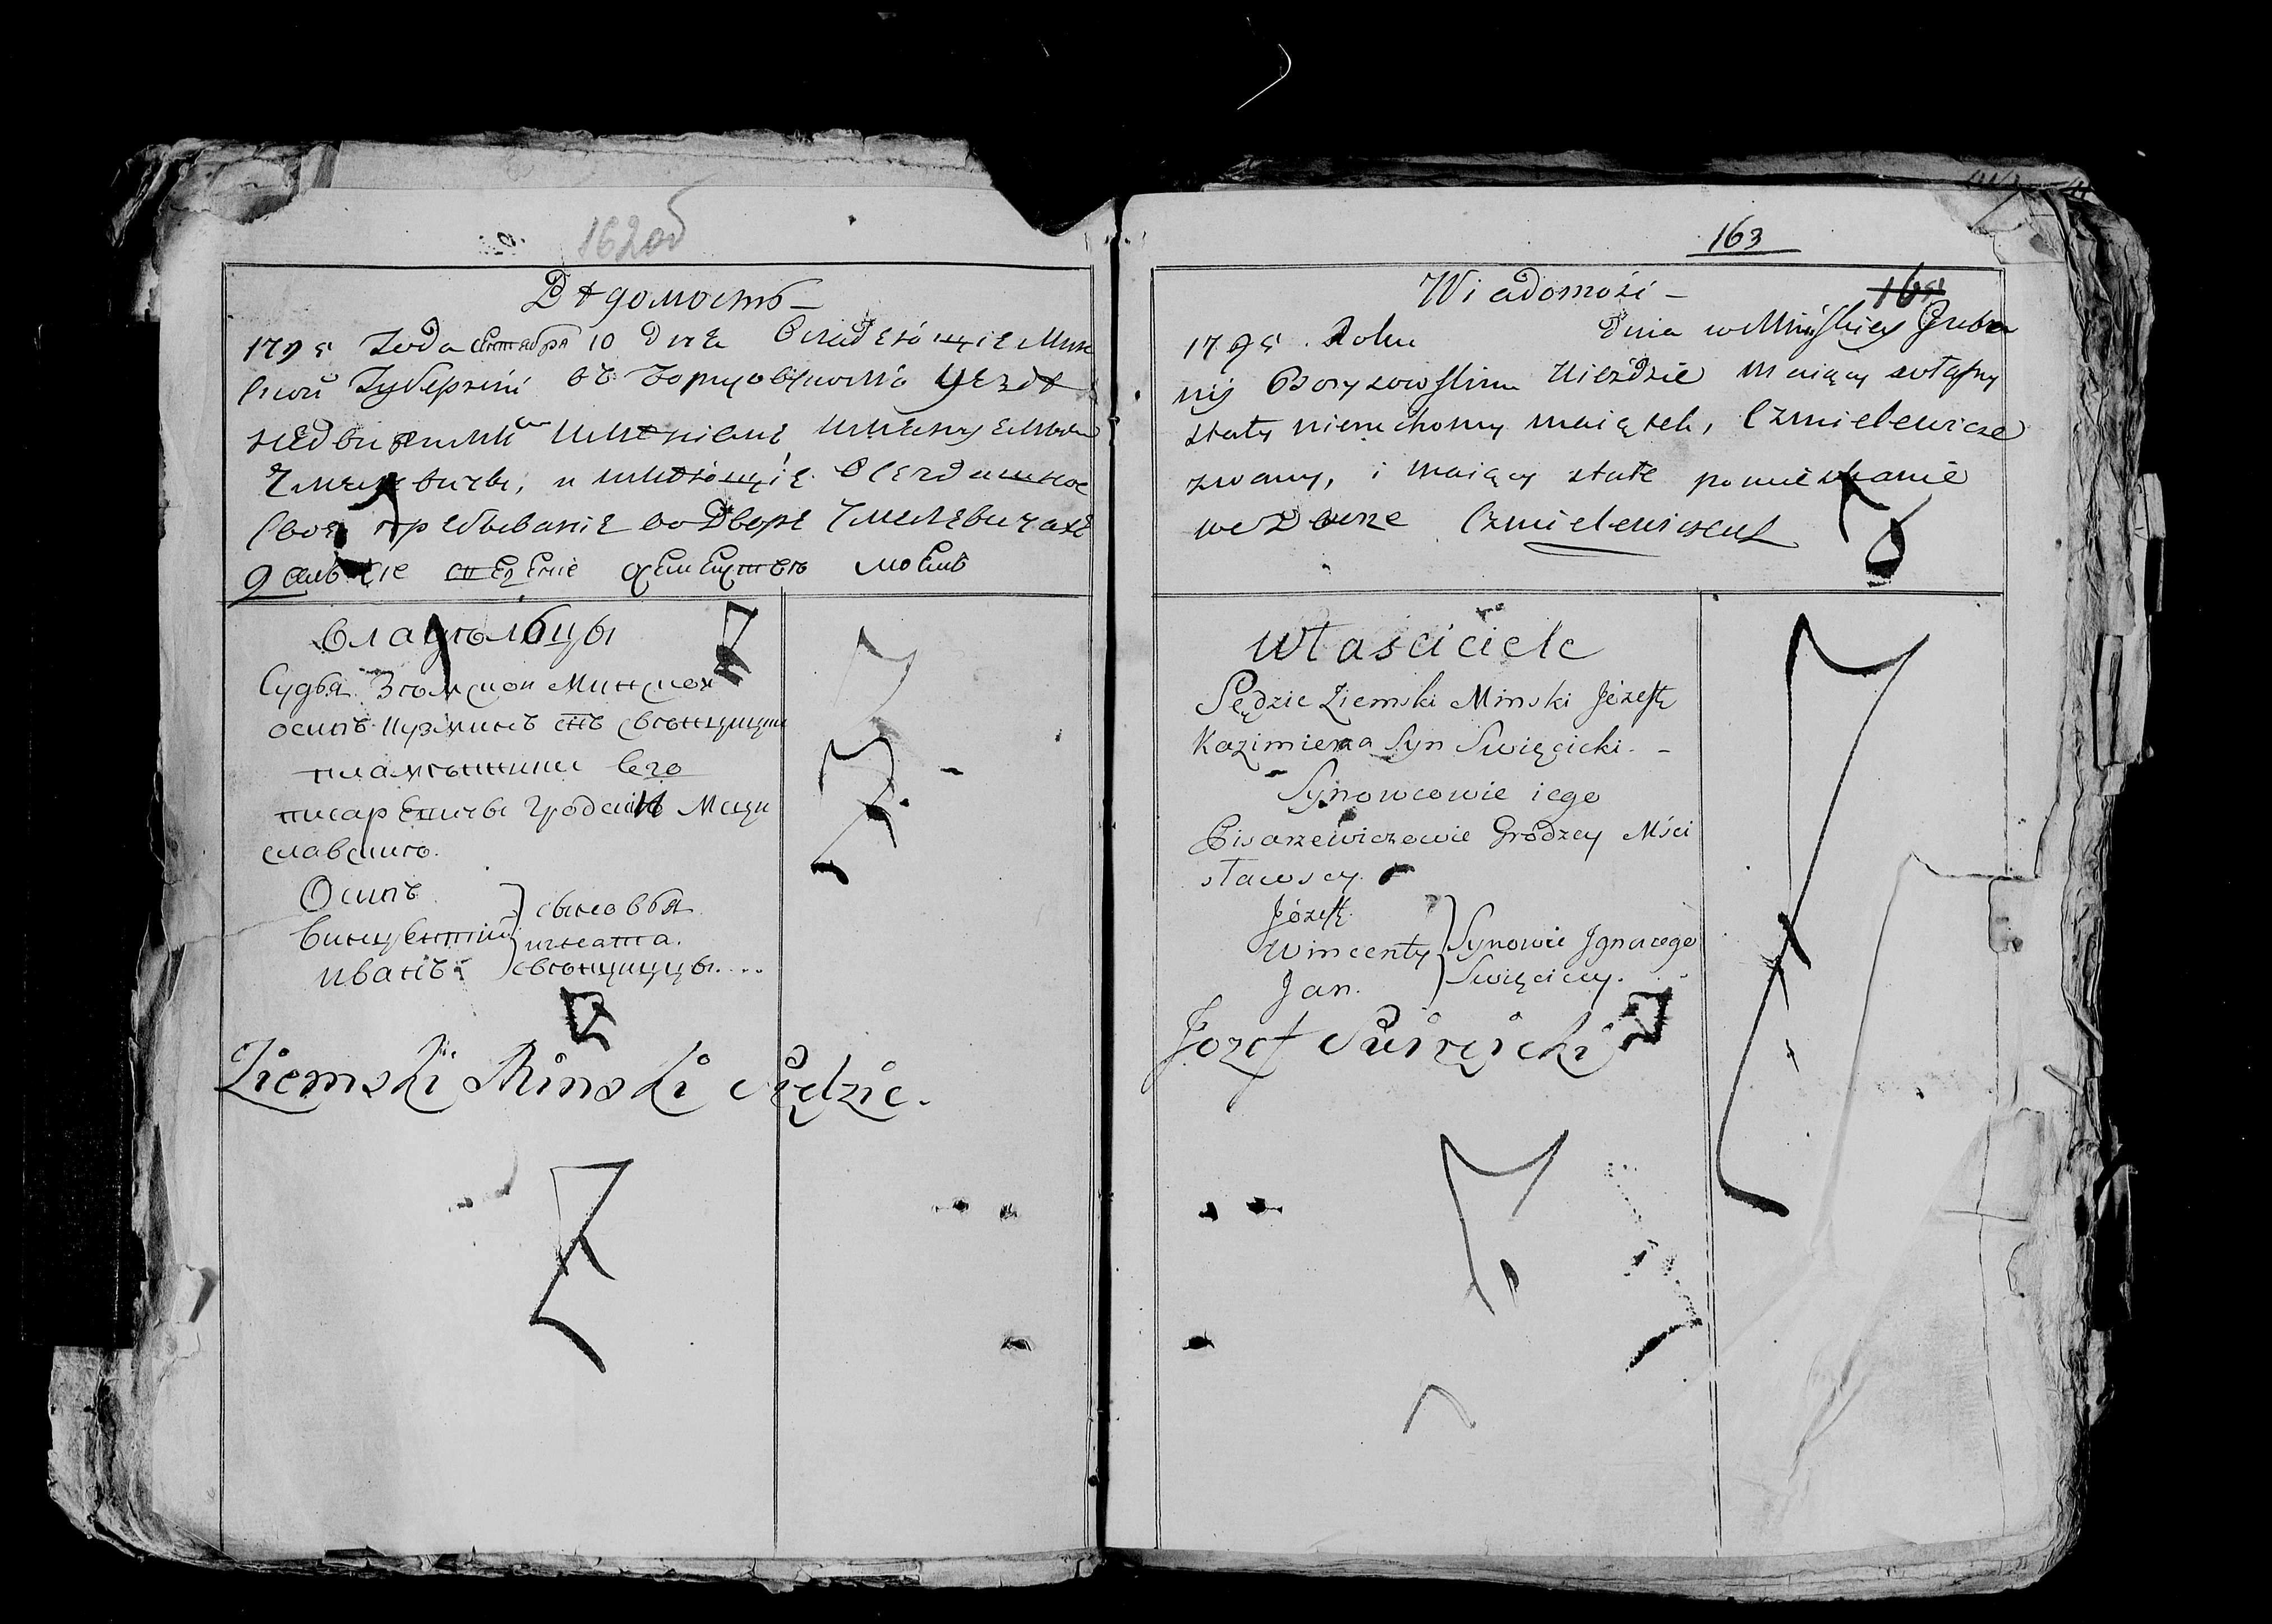 162об
Вѣдомость
1795 Года сентября 10 дня Владеющие Минс
кой Губернии въ Борисовскомъ Уезде
недвижимымъ имѣниемъ имянуемымъ
и имѣющие всегдашное
свое пребывание во Дворе Чмелевичахъ
владѣльцы
Судья Земской Минской
осипъ снъ свѣнцицки
племѣнники его
писаревичы Гродские Мсци
славские.
Осипъ
Винцентий
иванъ
сыновья
игната
свѣнциццы....
Ziemski Minski Sędzic.
163
Wiadomość
1795 Roku Dnia w Minskiey Guber
nij Borysowskim Uieździe maiący własny
stały nieruchomy maiątek, Czmielewicze
zwany, i maiący stałe pomieszkanie
we Dworze Czmielewiczach
właściciele
Sędzic Ziemski Minski Józeff
Kazimierza Syn Swięcicki.
Synowcowie iego
Pisarzewiczowie Grodzcy Mści
sławscy.
Józeff.
Wincenty
Jan.
Synowie Ignacego
Swięciccy.
Jozef Swięcicki